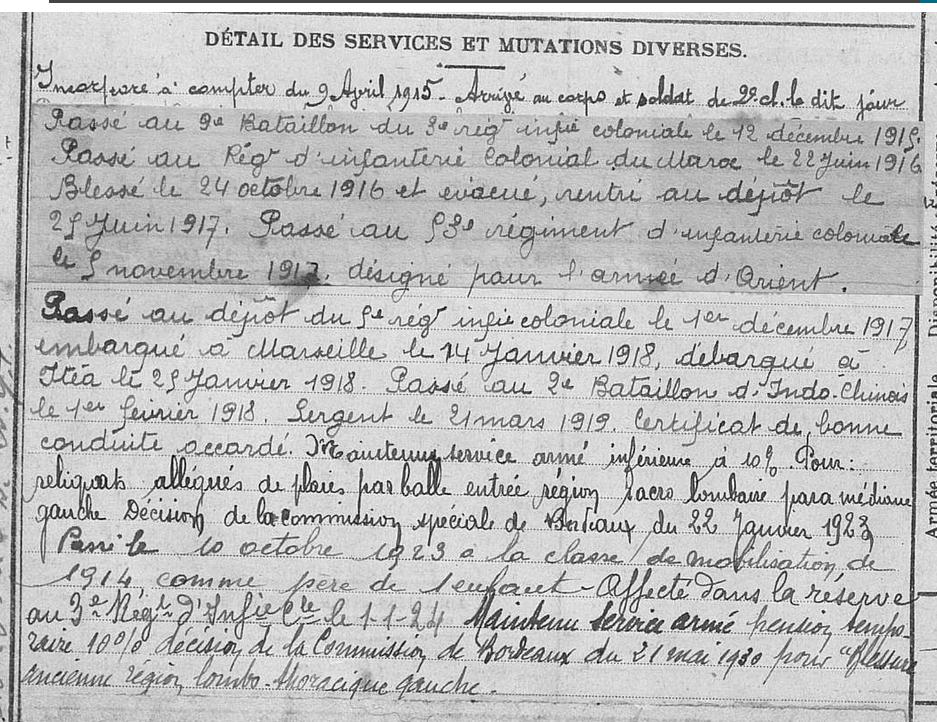 DÉTAIL DES SERVICES ET MUTATIONS DIVERSES.
Incorporé à compter du 9 April 1915 - Arrivé au corps et soldat de 2e cl. le dit jour
Passé au 9e Bataillon du 3e régt infie coloniale le 12 décembre 1915.
Passé au Régt d'infanterie Colonial du Maroc le 22 Juin 1916
Blessé le 24 octobre 1916 et évacué, rentré au dépôt le
25 Juin 1917. Passé au 53e régiment d'infanterie coloniale
le 5 novembre 1917. désigné pour l'armée d'Orient.
Passé au dépôt du 5e régt infie coloniale le 1er décembre 1917,
embarqué à Marseille le 14 Janvier 1918, débarqué à
Itéa le 25 Janvier 1918. Passé au 2e Bataillon d'Indo-Chinois
le 1er février 1918. Sergent le 21 mars 1919. Certificat de bonne
conduite accordé. Maintenu service armé inférieure à 10%. Pour:
reliquats allégués de plaies par balle entrée région sacro lombaire para médiane
gauche Décision de la commission spéciale de Bordeaux du 22 Janvier 1923
Passé le 10 octobre 1923 à la classe de mobilisation de
1914 comme père de 1 enfant - Affecté dans la réserve
au 3e Régt d'Infie Cle le 1-1-24 Maintenu service armé pension tempo-
raire 10% décision de la Commission de Bordeaux du 21 mai 1930 pour "Blessure
ancienne région lombo-thoracique gauche.
Disponibilité
Armée territoriale